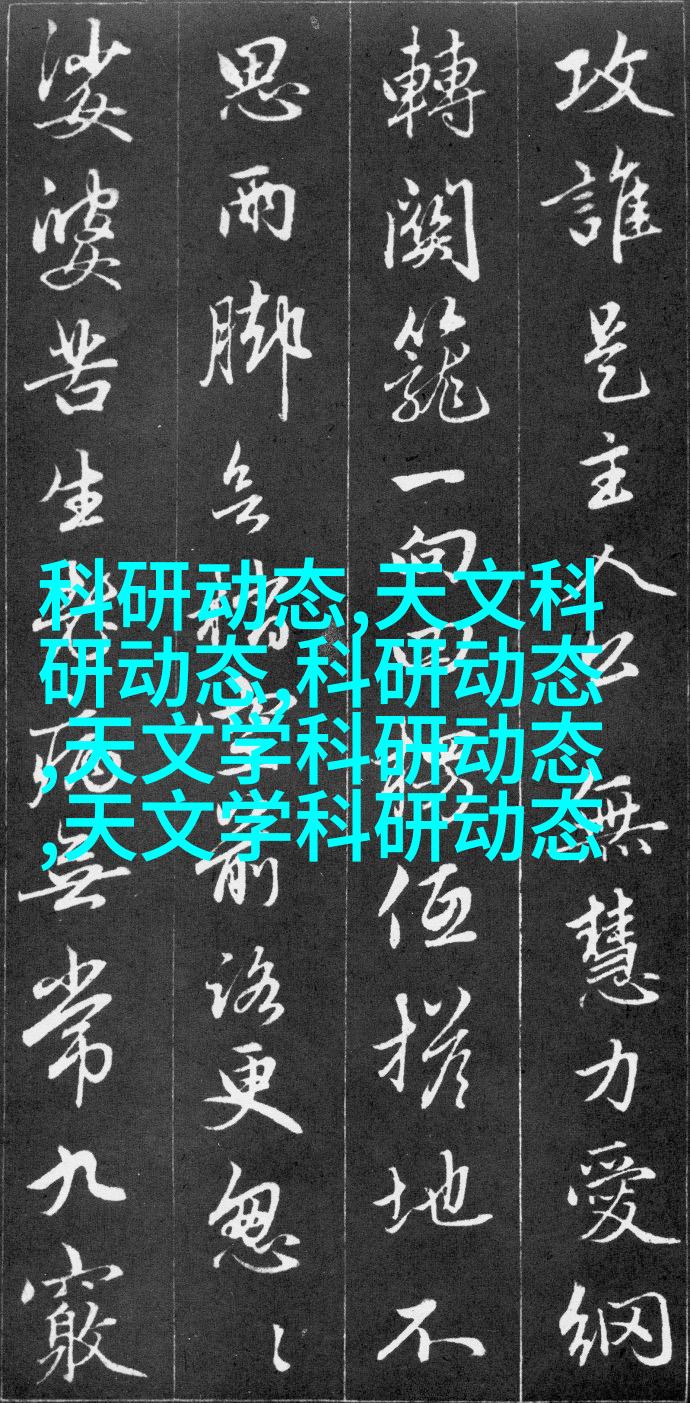 攻誰是主人公無慧力愛網
轉關籠一向
伍搓地不
思兩脚
前
路更怱〻
娑婆苦生
無常九竅
科研动态,天文科
研动态,科研动态
,天文学科研动态
,天文学科研动态